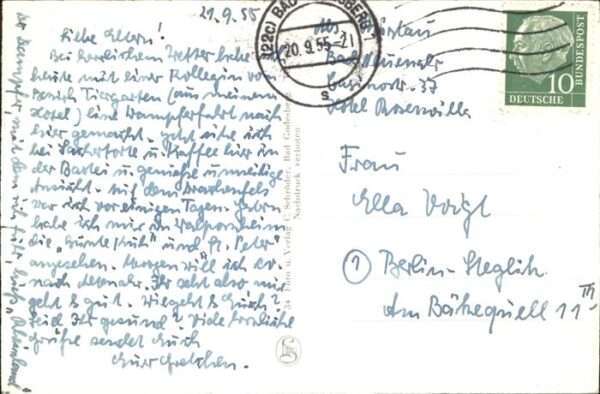 29.9.55
Liebe Eltern!
Bei herrlichem Wetter habe ich
heute mit einer Kollegin vom
Bezirk Tiergarten (aus meinem
Hotel) eine Dampferfahrt nach
hier gemacht. Jetzt sitze ich
bei Sachertorte u. Kaffee hier in
der Bastei u. genieße
Aussicht. Auf dem Drachenfels
war ich vor einigen Tagen. Gestern
habe ich mir in Walporzheim
die „Bunte Kuh" und „St. Peter"
angesehen. Morgen will ich
nach Altenahr. Ihr seht also mir
geht es gut. Wie geht es Euch?
Seid Ihr gesund? Viele herzliche
Grüße sendet Euch
Euer Gretchen.
Der Dampfer, mit dem ich fuhr, hieß „Rheinland"
Abs.
Bad Neuenahr
37
Hotel Rosenvilla
(22c) BAD GODESBERG 1
20.9.55-21
s
10
DEUTSCHE
BUNDESPOST
Frau
Ella Voigt
① Berlin-Steglitz
Am Bäkequell 11 III
Verlag C. Schröder, Bad Godesberg
Nachdruck verboten